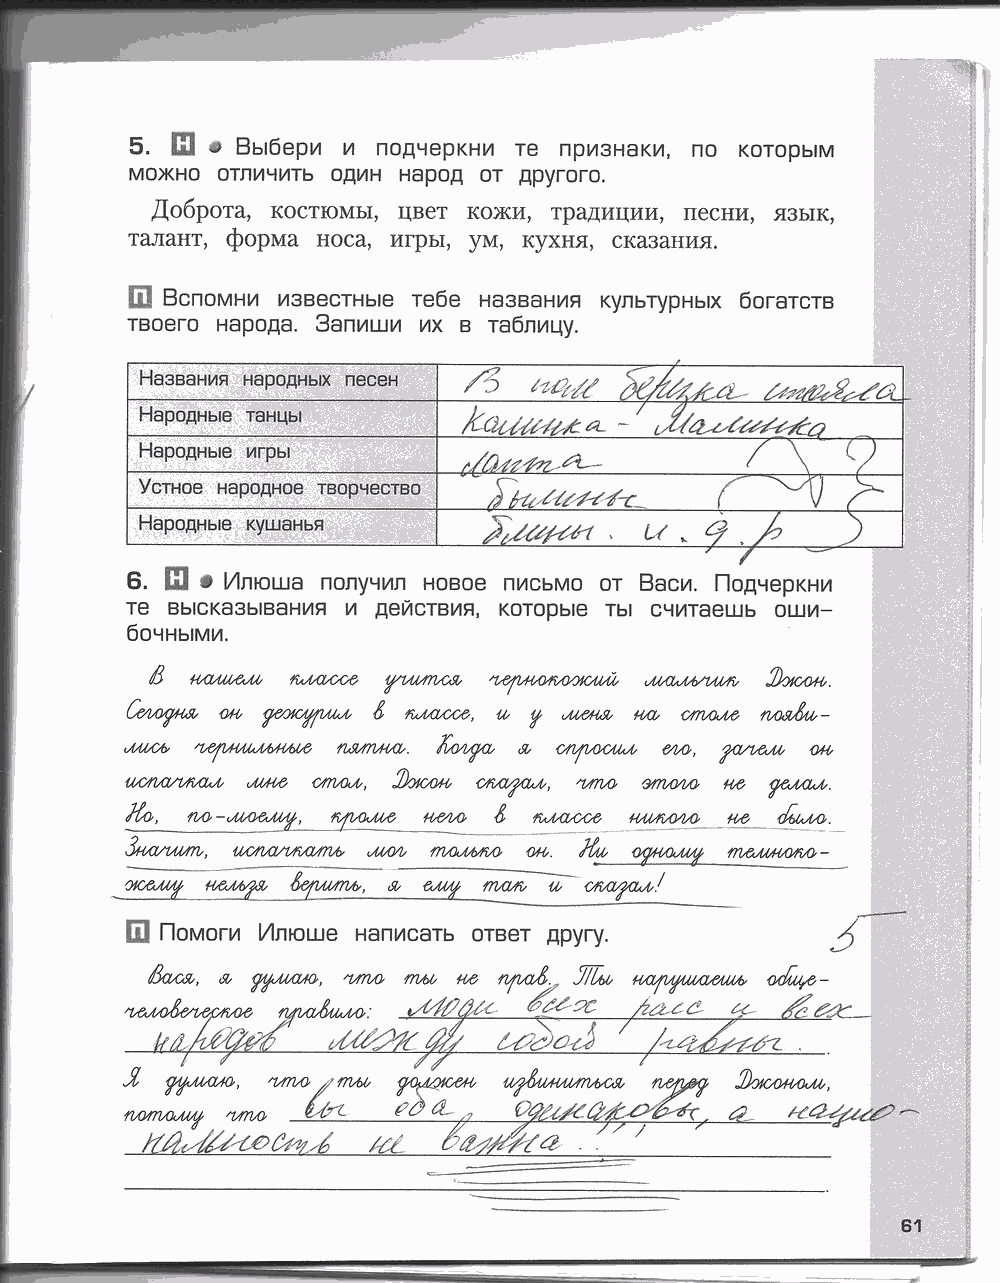 5. Н • Выбери и подчеркни те признаки, по которым
можно отличить один народ от другого.
Доброта, костюмы, цвет кожи, традиции, песни, язык,
талант, форма носа, игры, ум, кухня, сказания.
П Вспомни известные тебе названия культурных богатств
твоего народа. Запиши их в таблицу.
Названия народных песен В поле берёзка стояла
Народные танцы Калинка - Малинка
Народные игры лапта
Устное народное творчество былины
Народные кушанья блины. и. д. р
6. Н • Илюша получил новое письмо от Васи. Подчеркни
те высказывания и действия, которые ты считаешь оши-
бочными.
В нашем классе учится чернокожий мальчик Джон.
Сегодня он дежурил в классе, и у меня на столе появи-
лись чернильные пятна. Когда я спросил его, зачем он
испачкал мне стол, Джон сказал, что этого не делал.
Но, по-моему, кроме него в классе никого не было.
Значит, испачкать мог только он. Ни одному темноко-
жему нельзя верить, я ему так и сказал!
П Помоги Илюше написать ответ другу.
5
Вася, я думаю, что ты не прав. Ты нарушаешь обще-
человеческое правило: люди всех расс и всех
народов между собой равны.
Я думаю, что ты должен извиниться перед Джоном,
потому что вы оба одинаковы, а нацио-
нальность не важна...
61